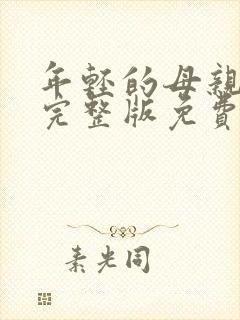 年轻的母親
完整版免費
素光同